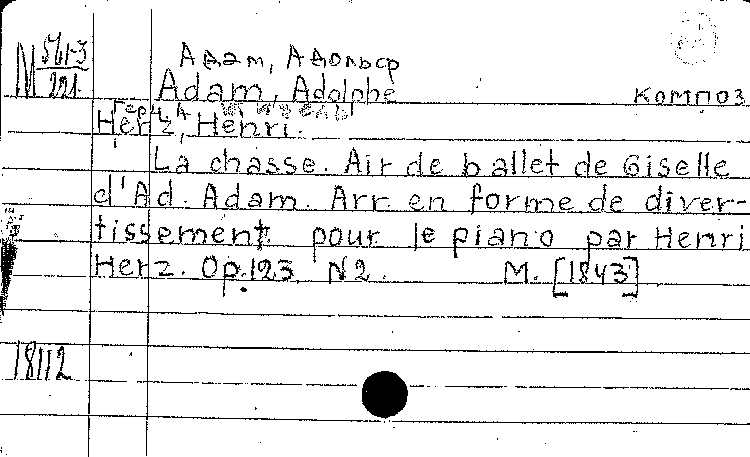 М 561-3
221
Адам, Адольф
Adam, Adolphe
КОМПОЗ
Герц, А
Herz, Henri.
La chasse. Air de ballet de Giselle
d'Ad. Adam. Arr. en forme de diver-
tissement pour le piano par Henri
Herz. Op. 123 N 2. М. [1843]
18112